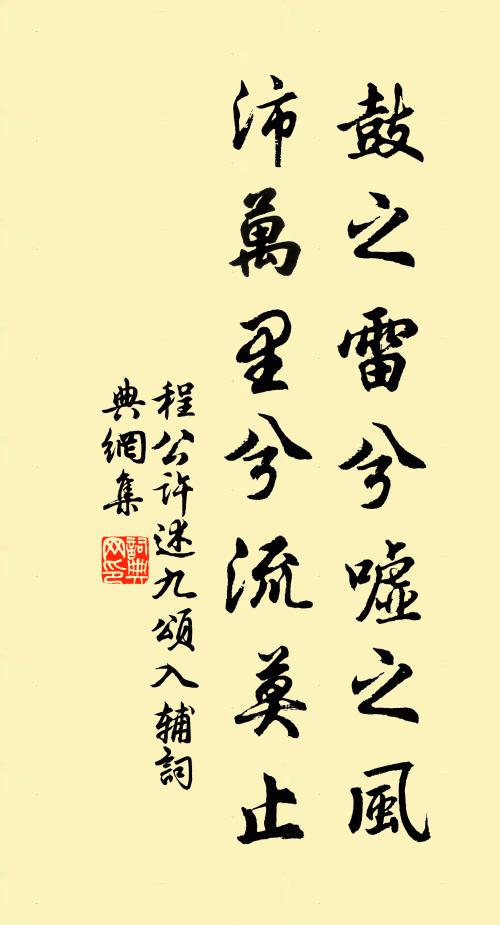 鼓之雷兮嘘之風
沛萬里兮流莫止
程公許述九頌入輔詞
典網集
詞典網印